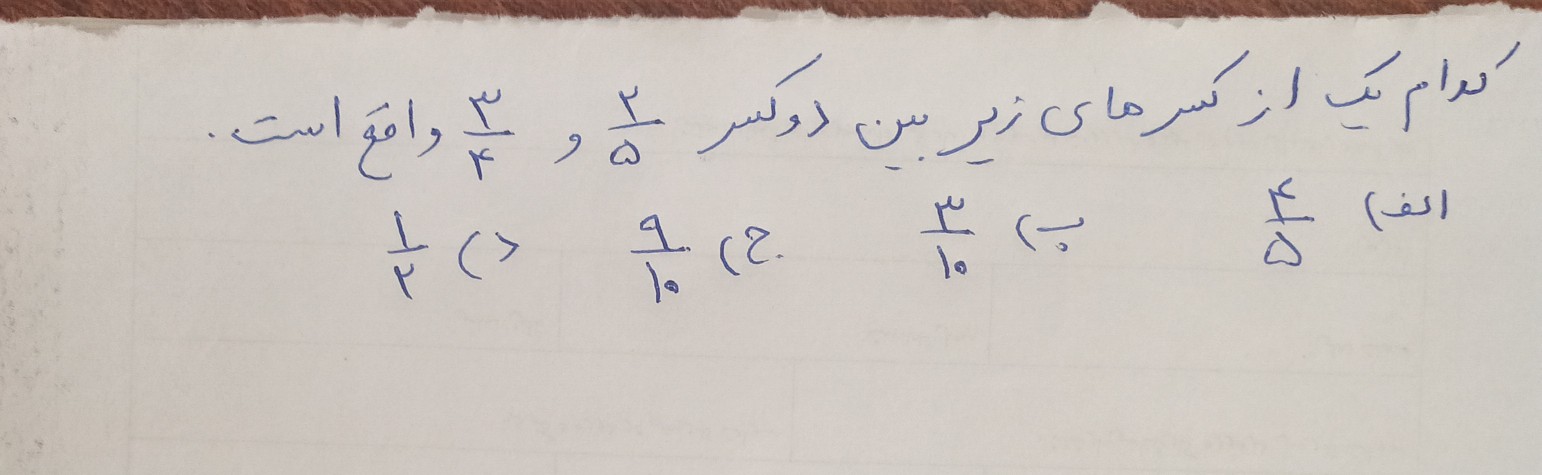 کدام یک از کسرهای زیر بین دو کسر ۲/۵ و ۳/۴ واقع است.
الف) ۴/۵ ب) ۳/۱۰ ج) ۹/۱۰ د) ۱/۲